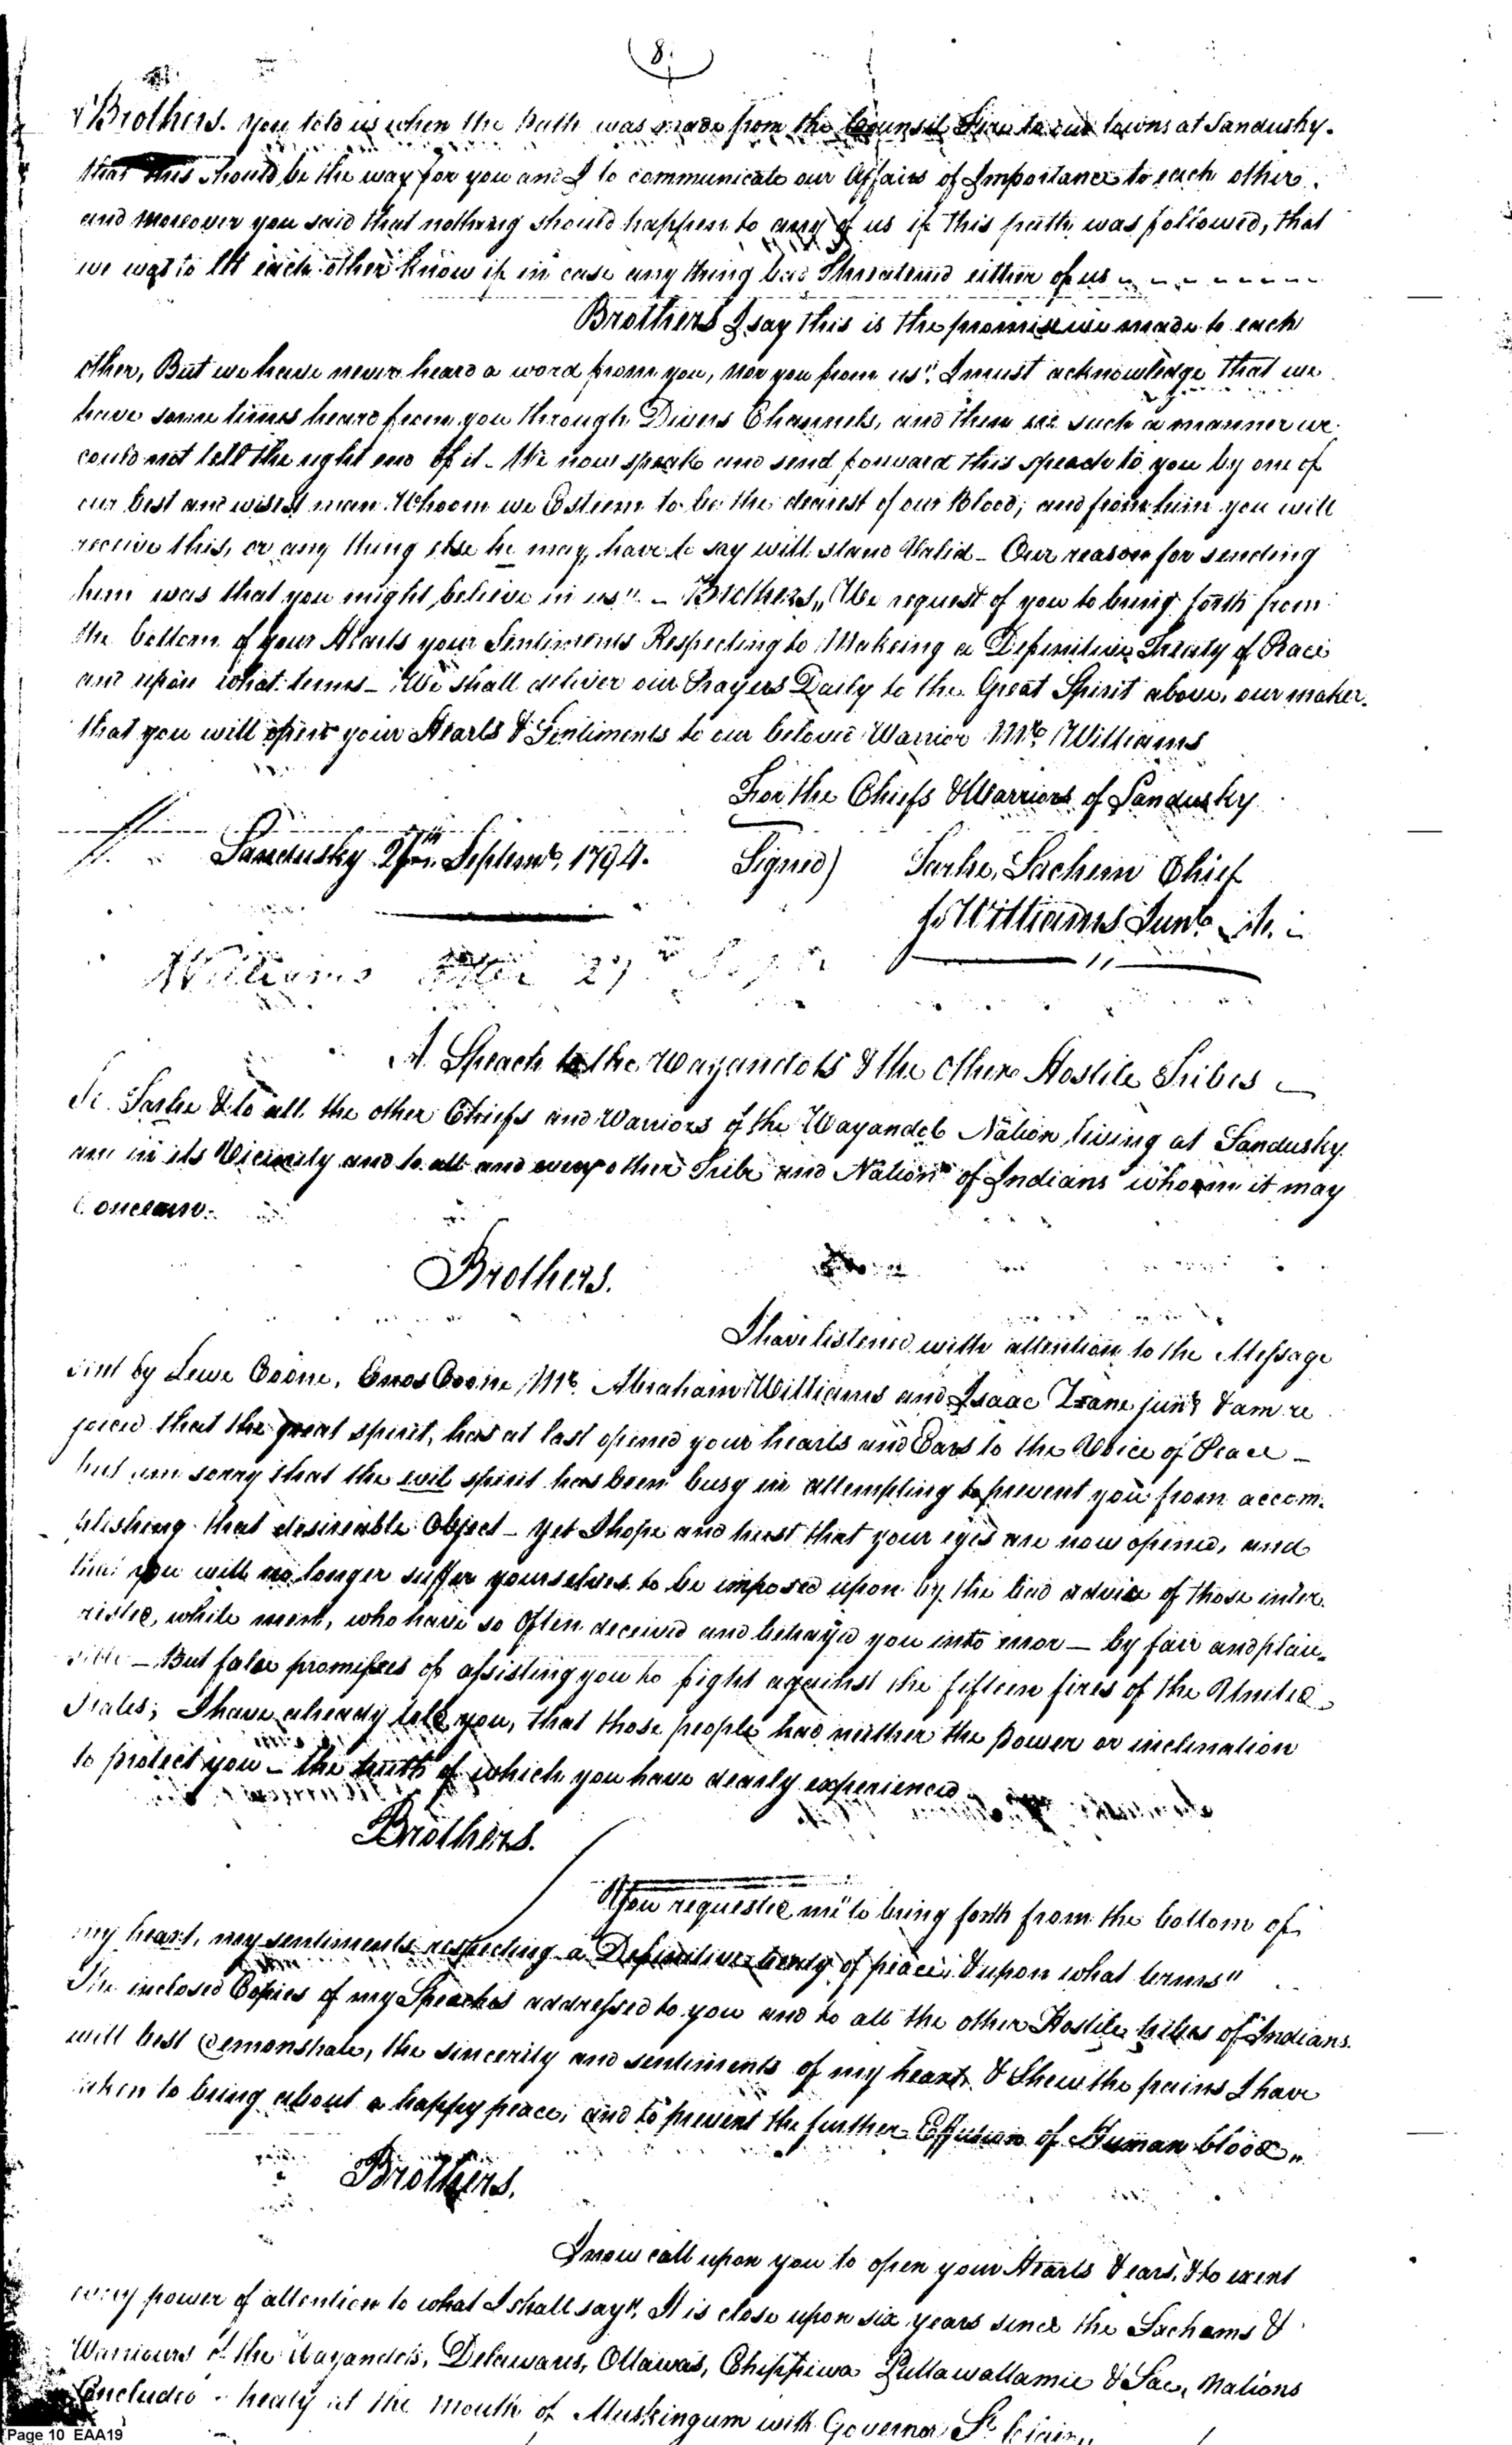 8
Brothers. you told us when the Path was made from the Counsil Fire to our towns at Sandusky.
that this should be the way for you and I to communicate our Affairs of Importance to each other.
and moreover you said that nothing should happen to any of us if this path was followed, that
we was to let each other know if in case any thing bad threatened either of us
Brothers I say this is the promise we made to each
other, But we have never heard a word from you, nor you from us". I must acknowledge that we
have some times heard from you through Divers Channels, and then in such a manner we
could not tell the right end of it - We now speak and send forward this speech to you by one of
our best and wisest man Whoom we Esteem to be the dearest of our Blood; and from him you will
receive this, or any thing else he may have to say will stand Valid - Our reason for sending
him was that you might believe in us" - Brothers, We request of you to bring forth from
the bottom of your Hearts your Sentiments Respecting to Makeing a Definitive Treaty of Peace
and upon what terms - We shall deliver our Prayers Daily to the Great Spirit above, our maker.
that you will open your Hearts & Sentiments to our beloved Warrior Mr. Williams
For the Chiefs & Warriors of Sandusky
Sandusky Septemb. 1794. Signed) Tarhe, Sachem Chief
Williams Junr.
Williams 27th
A Speach to the Wayandots & the other Hostile Tribes
To Tarhe & to all the other Chiefs and Warriors of the Wayandot Nation, living at Sandusky
and in its Vicinity and to all and every other Tribe and Nation of Indians whoom it may
Concearn.
Brothers.
I have listened with attention to the Message
sent by Lewe Boone, Enos Coone, Mr. Abraham Williams and Isaac Zane junr & am re
joiced that the great spirit, has at last opened your hearts and Ears to the Voice of Peace -
but am sorry that the evil spirit has been busy in attempting to prevent you from accom-
plishing that desireable Object - yet I hope and trust that your eyes are now opened, and
that you will no longer suffer yourselves to be imposed upon by the bad advice of those inter-
rested, white ment, who have so often deceived and betray'd you into error - by fair and plau-
sible - But false promisses of assisting you to fight against the fifteen fires of the United
States; I have already told you, that those people had neither the power or inclination
to protect you - the truth of which you have dearly experienced
Brothers.
You requested me "to bring forth from the bottom of
my heart, my sentiments respecting a Definitive treaty of peace, & upon what terms"
The inclosed Copies of my Speaches addressed to you and to all the other Hostile tribes of Indians.
will best demonstrate, the sincerity and sentiments of my heart, & Shew the pains I have
taken to bring about a happy peace, and to prevent the further Effusion of Human blood,
Brothers.
I now call upon you to open your Hearts & ears, & to exert
every power of attention to what I shall say", It is close upon six years since the Sachams &
Warriours of the Wayandots, Delawares, Ottawas, Chippiwa Puttawattamie & Sac, Nations
Concluded a treaty at the mouth of Muskingum with Governor St. Clair,
Page 10 EAA19